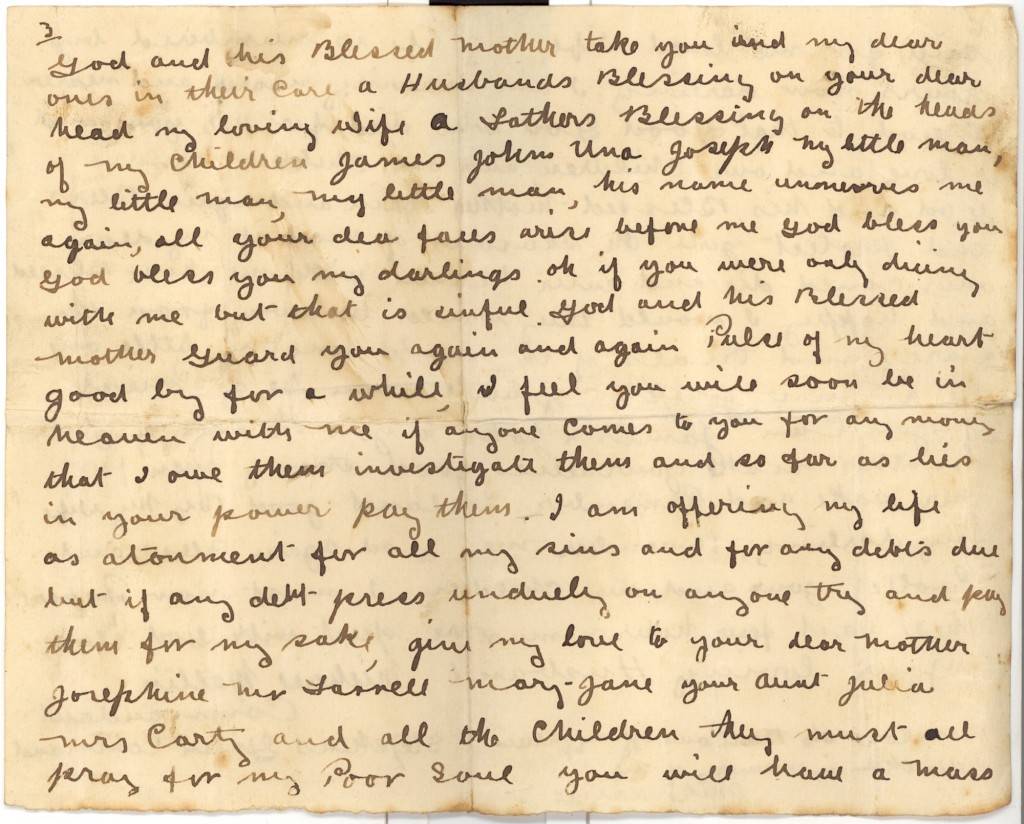 3
God and his Blessed mother take you and my dear
ones in their care a Husbands Blessing on your dear
head my loving wife a Fathers Blessing on the heads
of my children James John Una Joseph my little man,
my little man, my little man, his name unnerves me
again, all your dea faces arise before me God bless you
God bless you my darlings. oh if you were only dieing
with me but that is sinful. God and his Blessed
mother guard you again and again Pulse of my heart
good by for a while, I feel you will soon be in
heaven with me if anyone comes to you for any money
that I owe them investigate them and so far as lies
in your power pay them. I am offering my life
as atonment for all my sins and for any debts due
but if any debt press unduely on anyone try and pay
them for my sake, give my love to your dear mother
Josephine mr Farrell mary-Jane your aunt Julia
mrs Carty and all the children they must all
pray for my Poor Soul you will have a mass